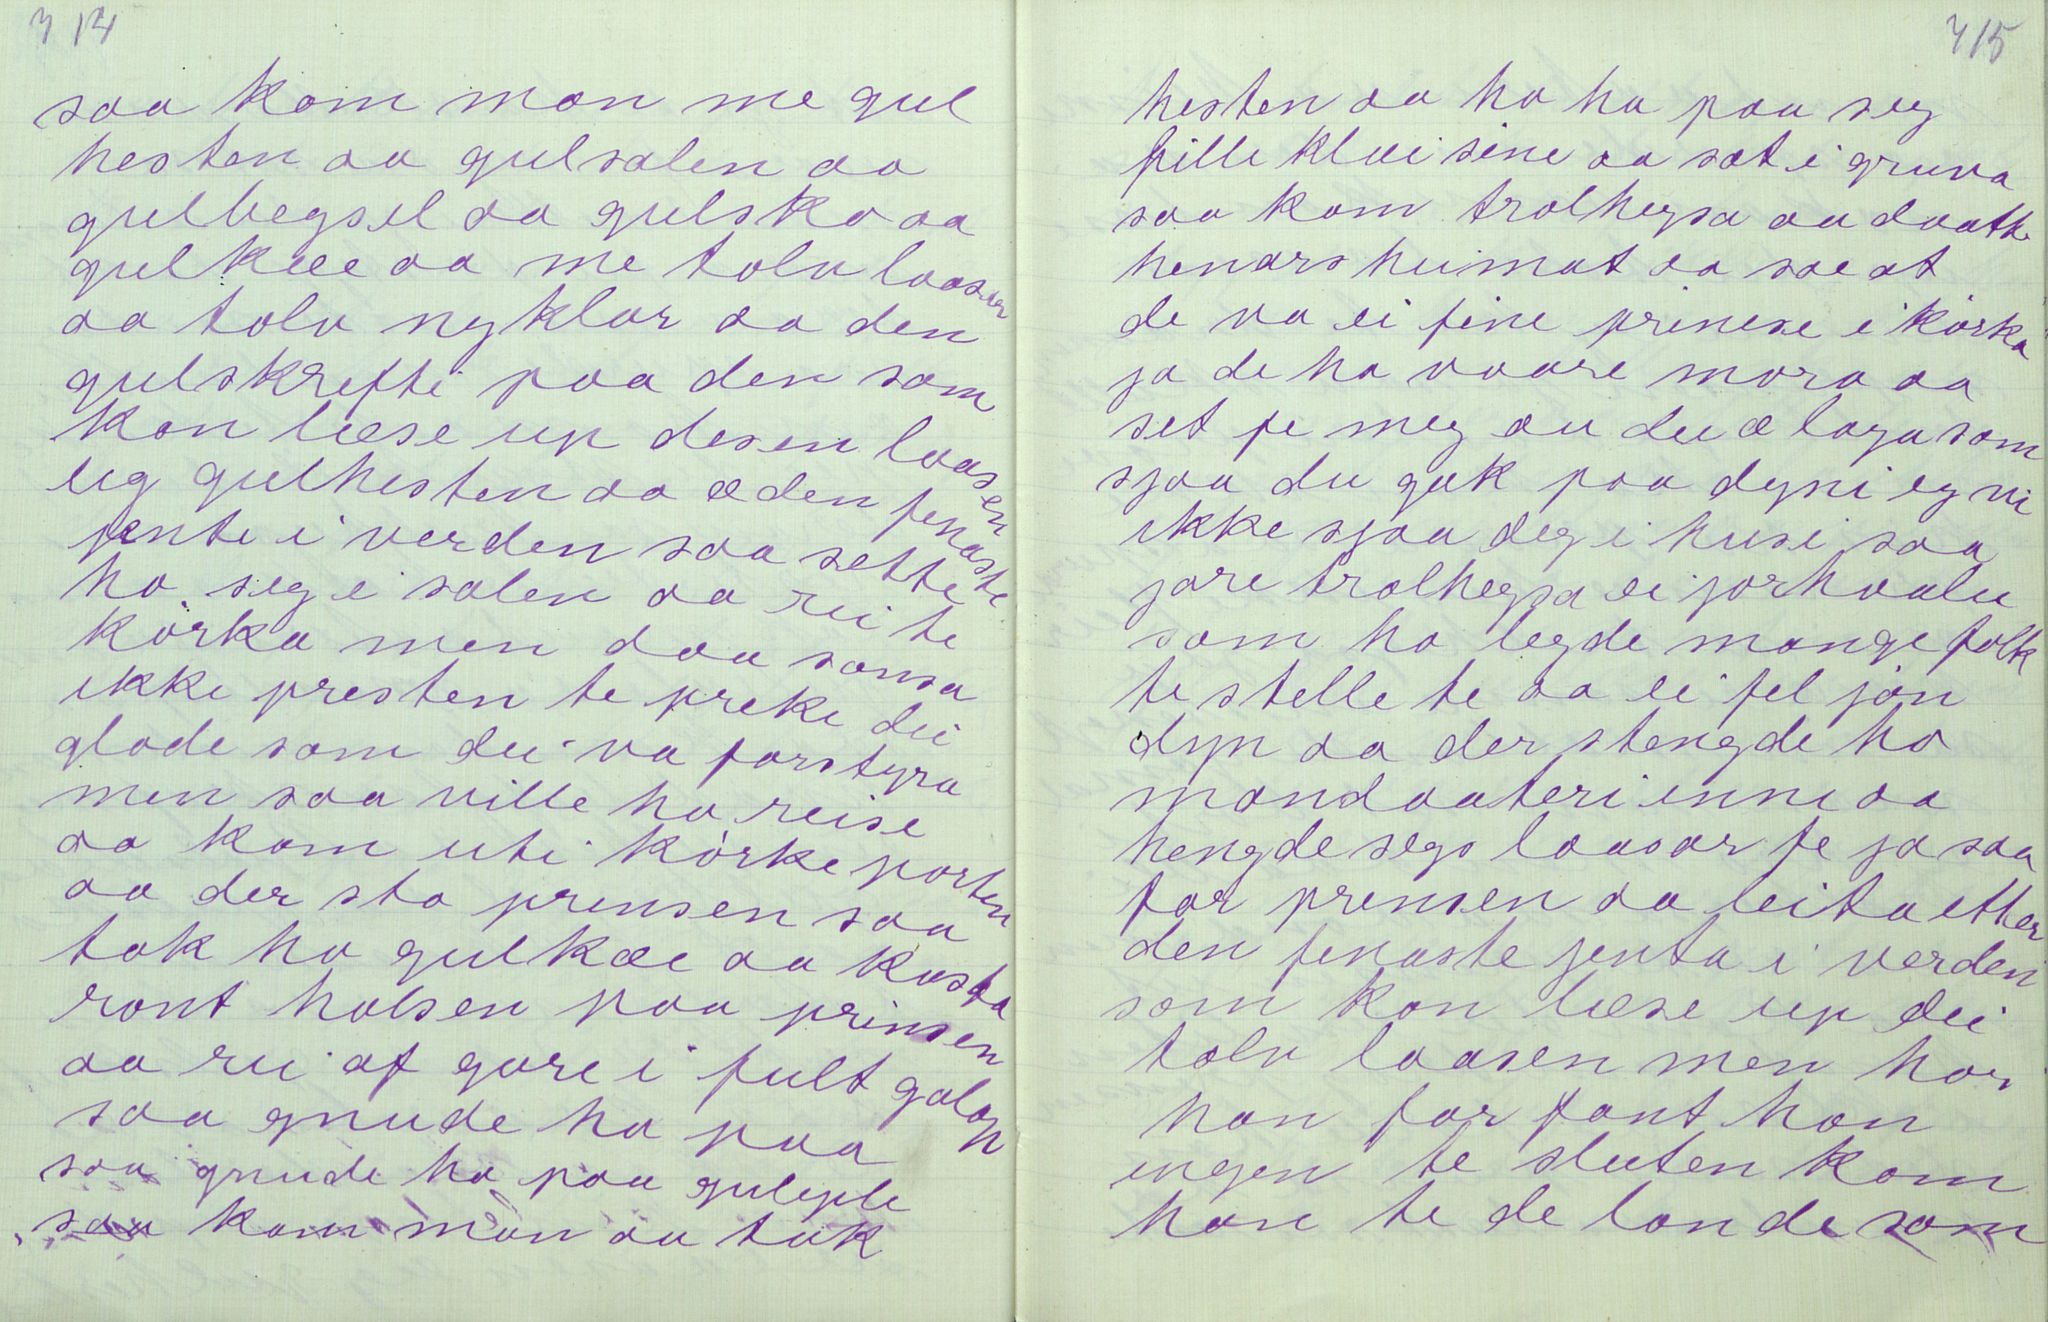 714
saa kom man me gul
hesten aa gulsalen aa
gulbegsel aa gulsko aa
gulkæe aa me tolv laaser
aa tolv nyklar aa den
gulskrefti paa den som
kan læse up desen laasen
eig gulhesten aa æ den finaste
jente i verden saa sette
ho seg i salen aa rei te
kòrka men daa sansa
ikki presten te preke dei
glode som dei va forstyra
men saa ville ho reise
aa kom uti kòrkeporten
aa der sto prinsen saa
tok ho gulkæe aa kasta
ront halsen paa prinsen
aa rei af gare i fult galop
saa gnude ho paa
saa gnude ho paa guleple
saa kom man aa tuk
715
hesten aa ho ha paa seg
fille klæi sine aa sat i gruva
saa kom trolhegsa aa daatte
henars heimat aa sae at
de va ei fine prinese i kòrka
ja de ha vaare mora aa
set fe meg au du æ laga som
sjaa du gak paa dyni eg vi
ikke sjaa deg i husi saa
jore trolhegsa ei jorhaalu
som ho legde mange folk
te stelle te aa ei fel jòn
dyn aa der stengde ho
mandaateri inne aa
hengde segs laasar fe ja saa
for prinsen aa leita etter
den finaste jenta i verden
som kan læse up dei
tolv laasen men hor
han for fant han
ingen te sluten kom
han te de lande som